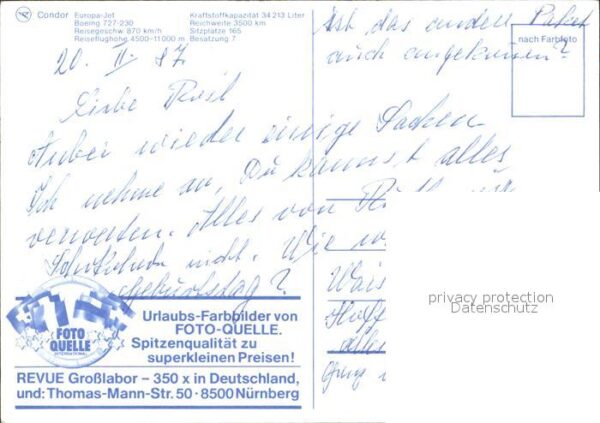 Condor Europa-Jet
Boeing 727-230
Reisegeschw. 870 km/h
Reiseflughöhe 4500-11000 m
Kraftstoffkapazität 34 213 Liter
Reichweite 3500 km
Sitzplätze 165
Besatzung 7
Ist das andere Paket
auch angekommen?
nach Farbfoto
20. II. 87
Liebe
Anbei wieder einige Sachen
Ich nehme an, Du kannst alles
verwerten. Alles von
nicht. Wie
Geburtstag?
alles
privacy protection
Datenschutz
FOTO
QUELLE
INTERNATIONAL
Urlaubs-Farbbilder von
FOTO-QUELLE.
Spitzenqualität zu
superkleinen Preisen!
REVUE Großlabor – 350 x in Deutschland,
und: Thomas-Mann-Str. 50 · 8500 Nürnberg